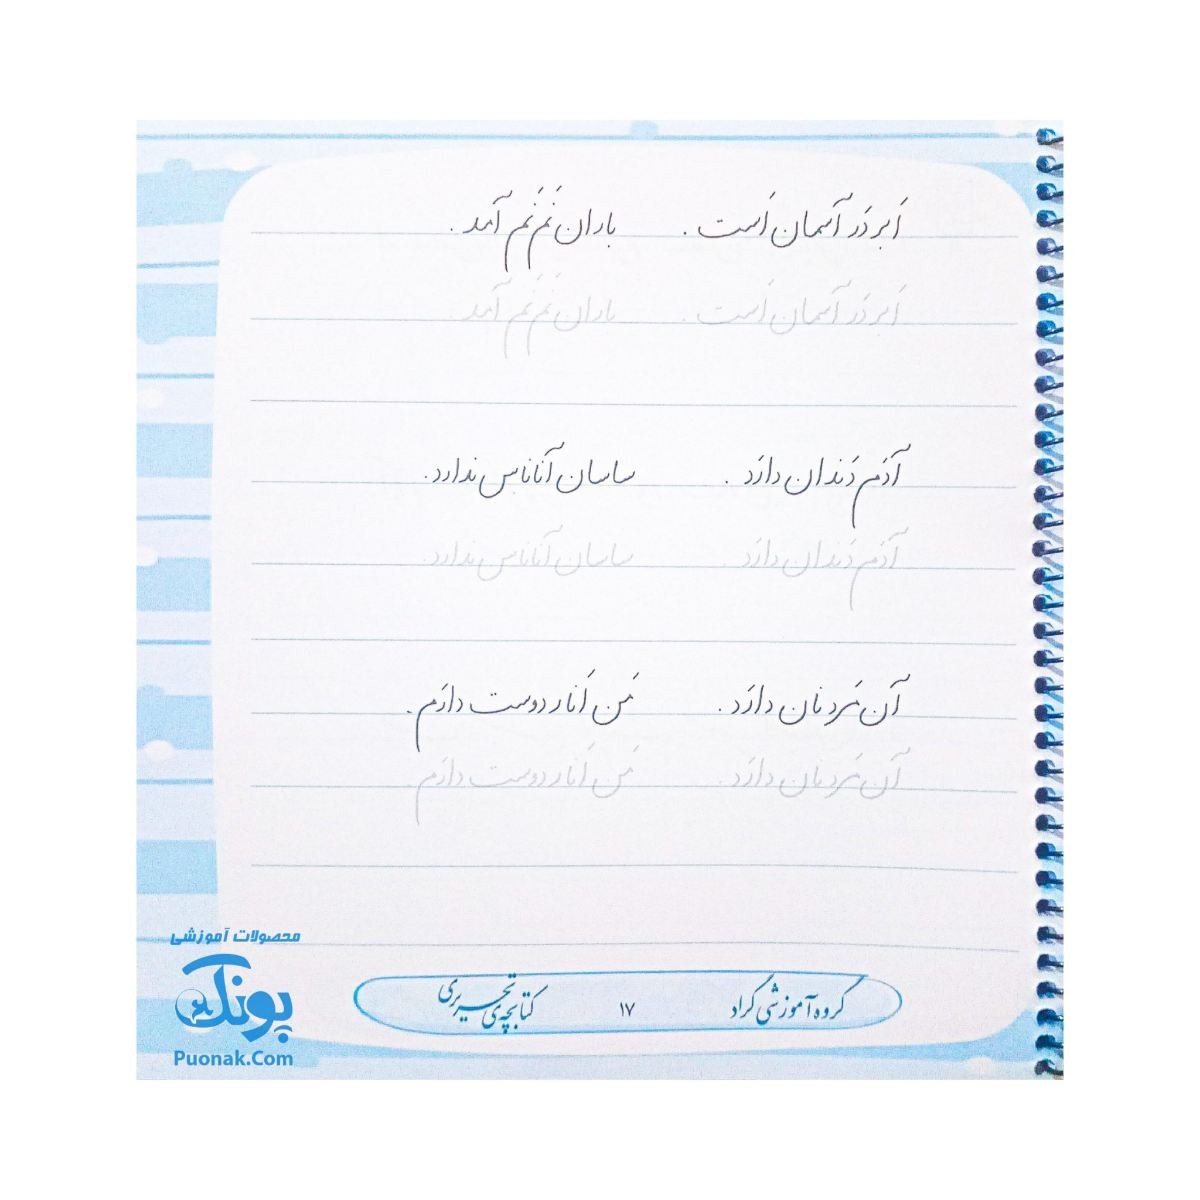 اَبر دَر آسمان اَست . باران نَم نَم آمد .
اَبر دَر آسمان اَست . باران نَم نَم آمد .
آدَم دَندان دارَد . ساسان آناناس ندارد.
آدَم دَندان دارَد . ساسان آناناس ندارد.
آن مَرد نان دارَد . مَن اَنار دوست دارَم .
آن مَرد نان دارَد . مَن اَنار دوست دارَم .
گروه آموزشی گراد ۱۷ کتابچه‌ی تحریری
محصولات آموزشی
پونک
Puonak.Com